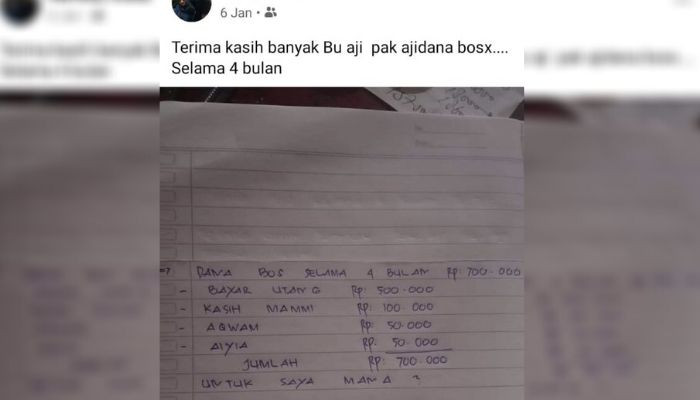 6 Jan
Terima kasih banyak Bu aji pak ajidana bosx....
Selama 4 bulan
=> DANA BOS SELAMA 4 BULAN Rp: 700.000
- BAYAR UTANG Rp: 500.000
- KASIH MAMMI Rp: 100.000
- AQWAM Rp: 50.000
- AIYIA Rp: 50.000
JUMLAH Rp: 700.000
UNTUK SAYA MANA ?